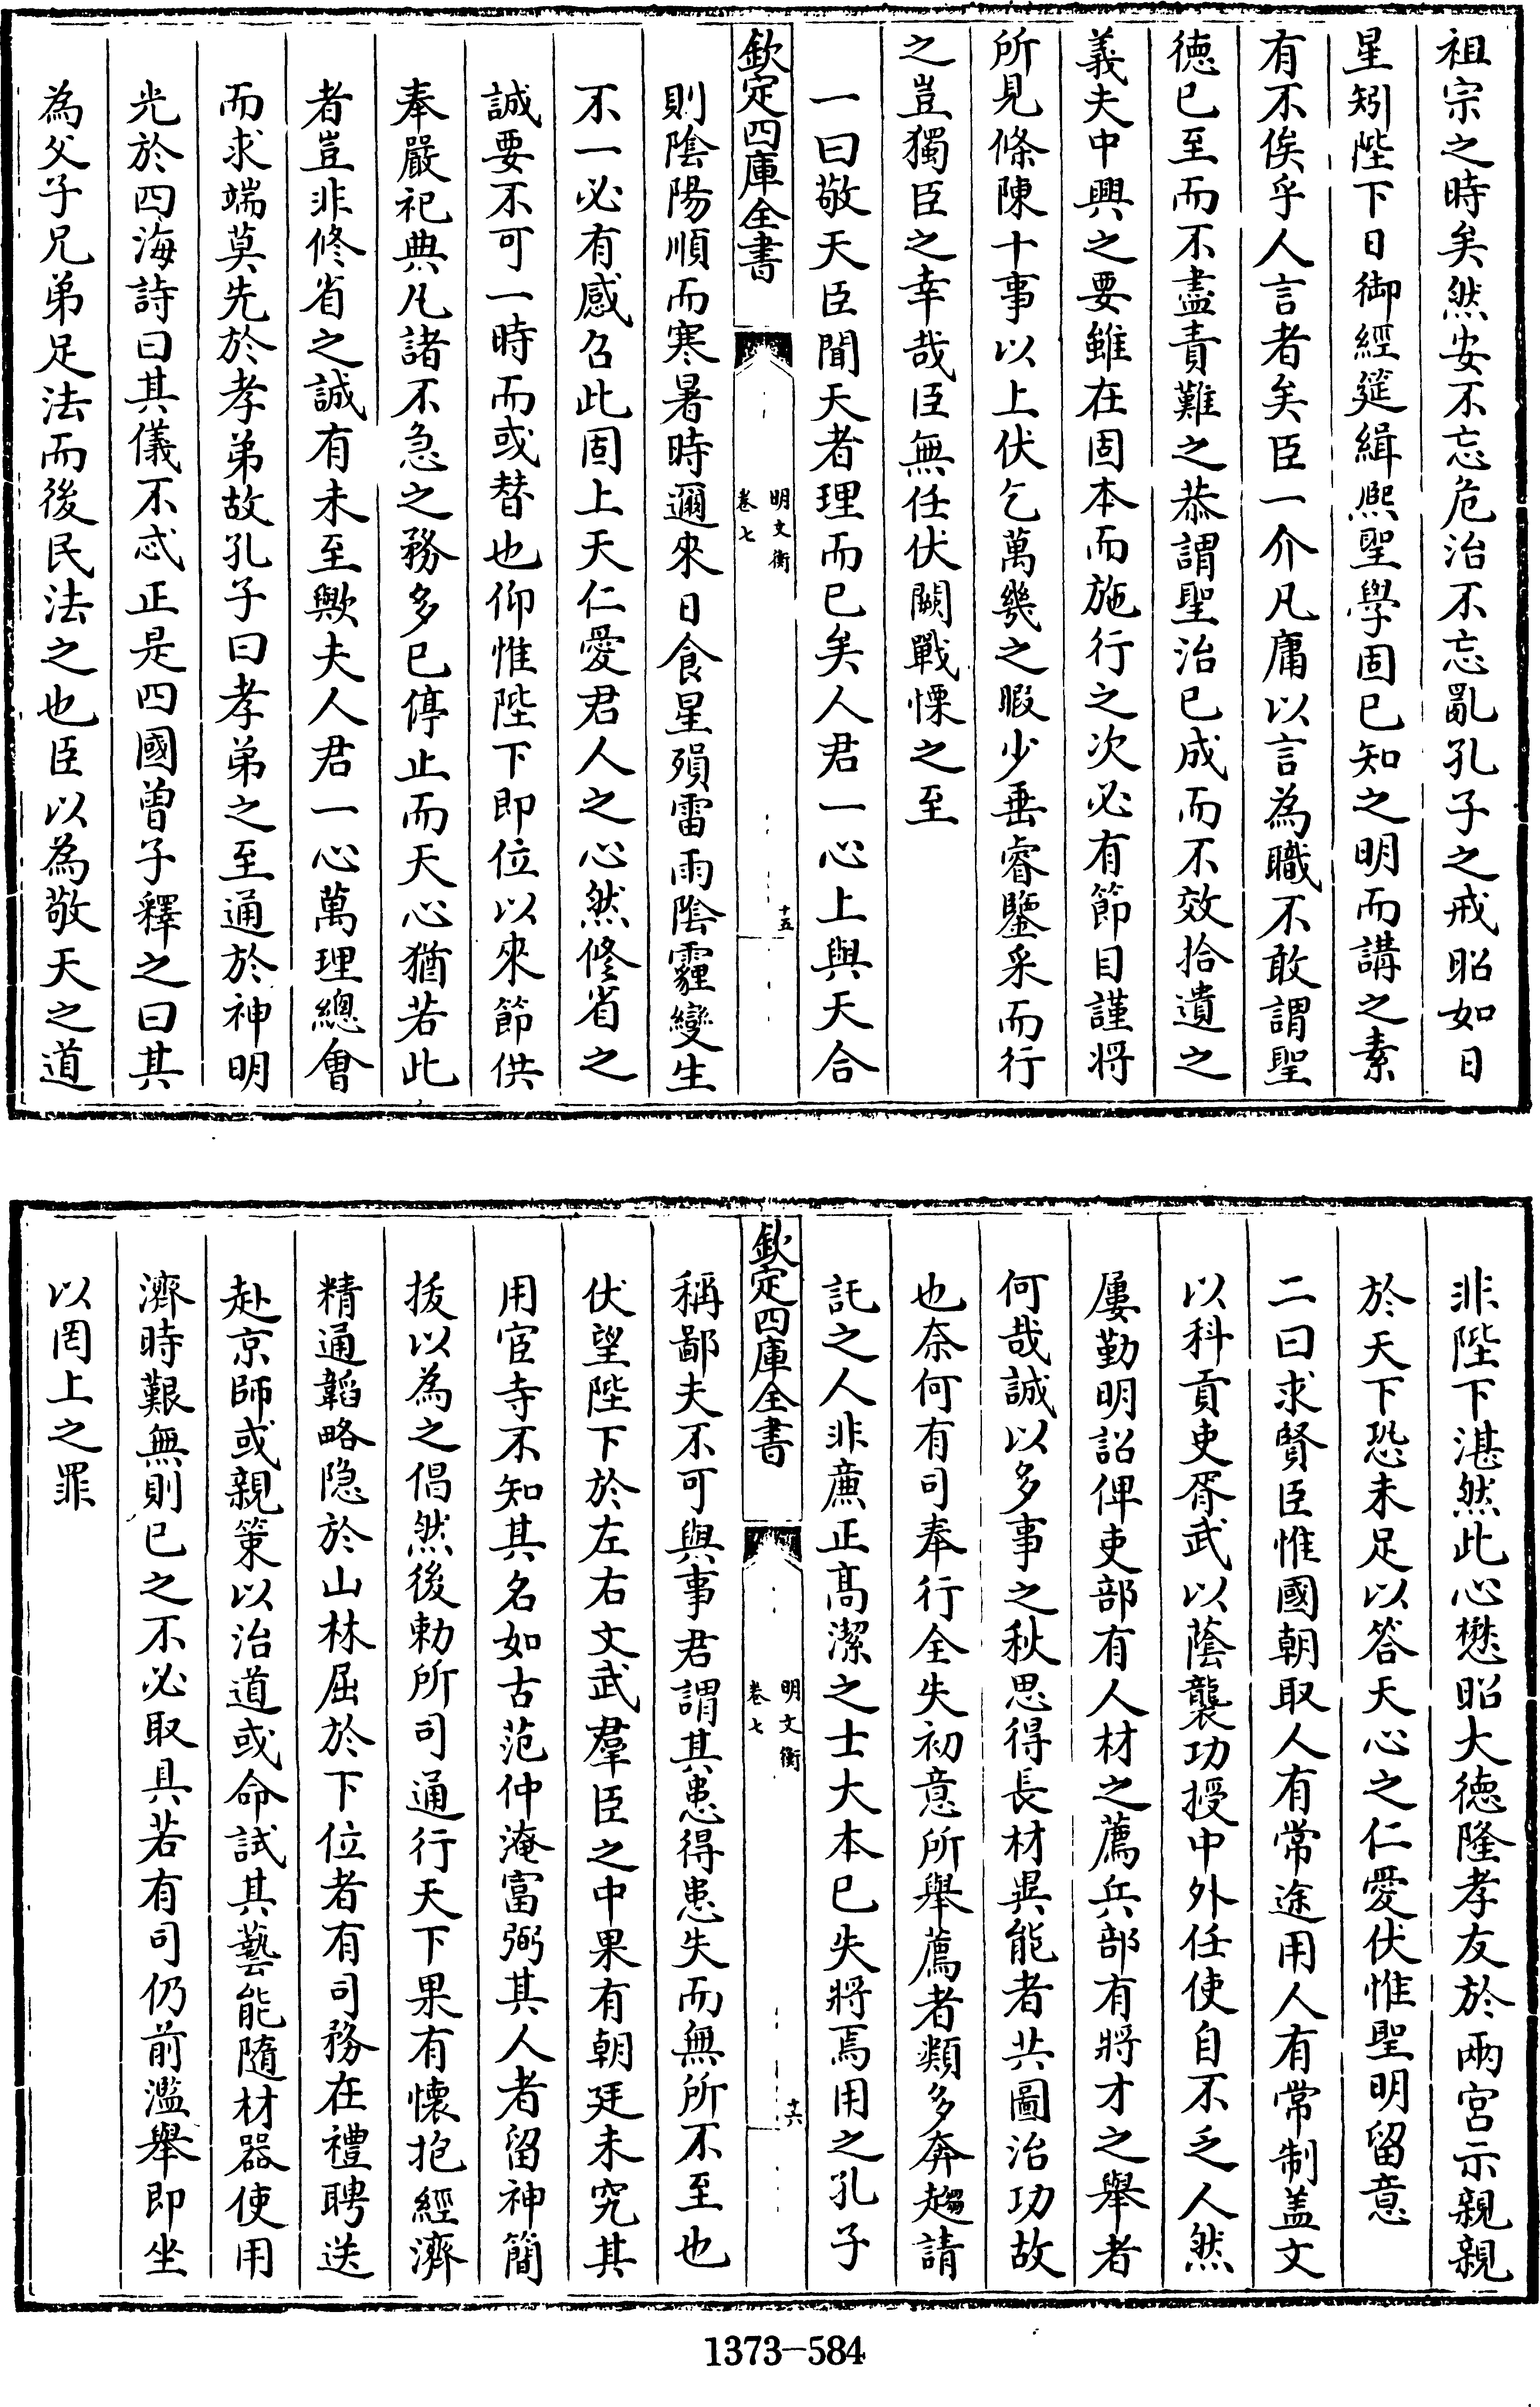 祖宗之時矣然安不忘危治不忘亂孔子之戒昭如日
星矧陛下日御經筵緝熈聖學固已知之明而講之素
有不俟乎人言者矣臣一介凡庸以言為職不敢謂聖
徳已至而不盡責難之恭謂聖治已成而不效拾遺之
義夫中興之要雖在固本而施行之次必有節目謹将
所見條陳十事以上伏乞萬幾之暇少垂睿鑒采而行
之豈獨臣之幸哉臣無任伏闕戰慄之至
一曰敬天臣聞天者理而已矣人君一心上與天合
欽定四庫全書
明文衡
卷七
十五
則陰陽順而寒暑時邇來日食星殞雷雨陰霾變生
不一必有感召此固上天仁愛君人之心然修省之
誠要不可一時而或替也仰惟陛下即位以來節供
奉嚴祀典凡諸不急之務多已停止而天心猶若此
者豈非修省之誠有未至歟夫人君一心萬理總會
而求端莫先於孝弟故孔子曰孝弟之至通於神明
光於四海詩曰其儀不忒正是四國曽子釋之曰其
為父子兄弟足法而後民法之也臣以為敬天之道
非陛下湛然此心懋昭大徳隆孝友於兩宫示親親
於天下恐未足以答天心之仁愛伏惟聖明留意
二曰求賢臣惟國朝取人有常途用人有常制盖文
以科貢吏胥武以蔭襲功授中外任使自不乏人然
屢勤明詔俾吏部有人材之薦兵部有將才之舉者
何哉誠以多事之秋思得長材異能者共圖治功故
也奈何有司奉行全失初意所舉薦者類多奔趨請
託之人非亷正髙潔之士大本已失將焉用之孔子
欽定四庫全書
明文衡
卷七
十六
稱鄙夫不可與事君謂其患得患失而無所不至也
伏望陛下於左右文武羣臣之中果有朝廷未究其
用宦寺不知其名如古范仲淹富弼其人者留神簡
拔以為之倡然後勅所司通行天下果有懐抱經濟
精通韜略隐於山林屈於下位者有司務在禮聘送
赴京師或親策以治道或命試其藝能隨材器使用
濟時艱無則已之不必取具若有司仍前濫舉即坐
以罔上之罪
1373-584